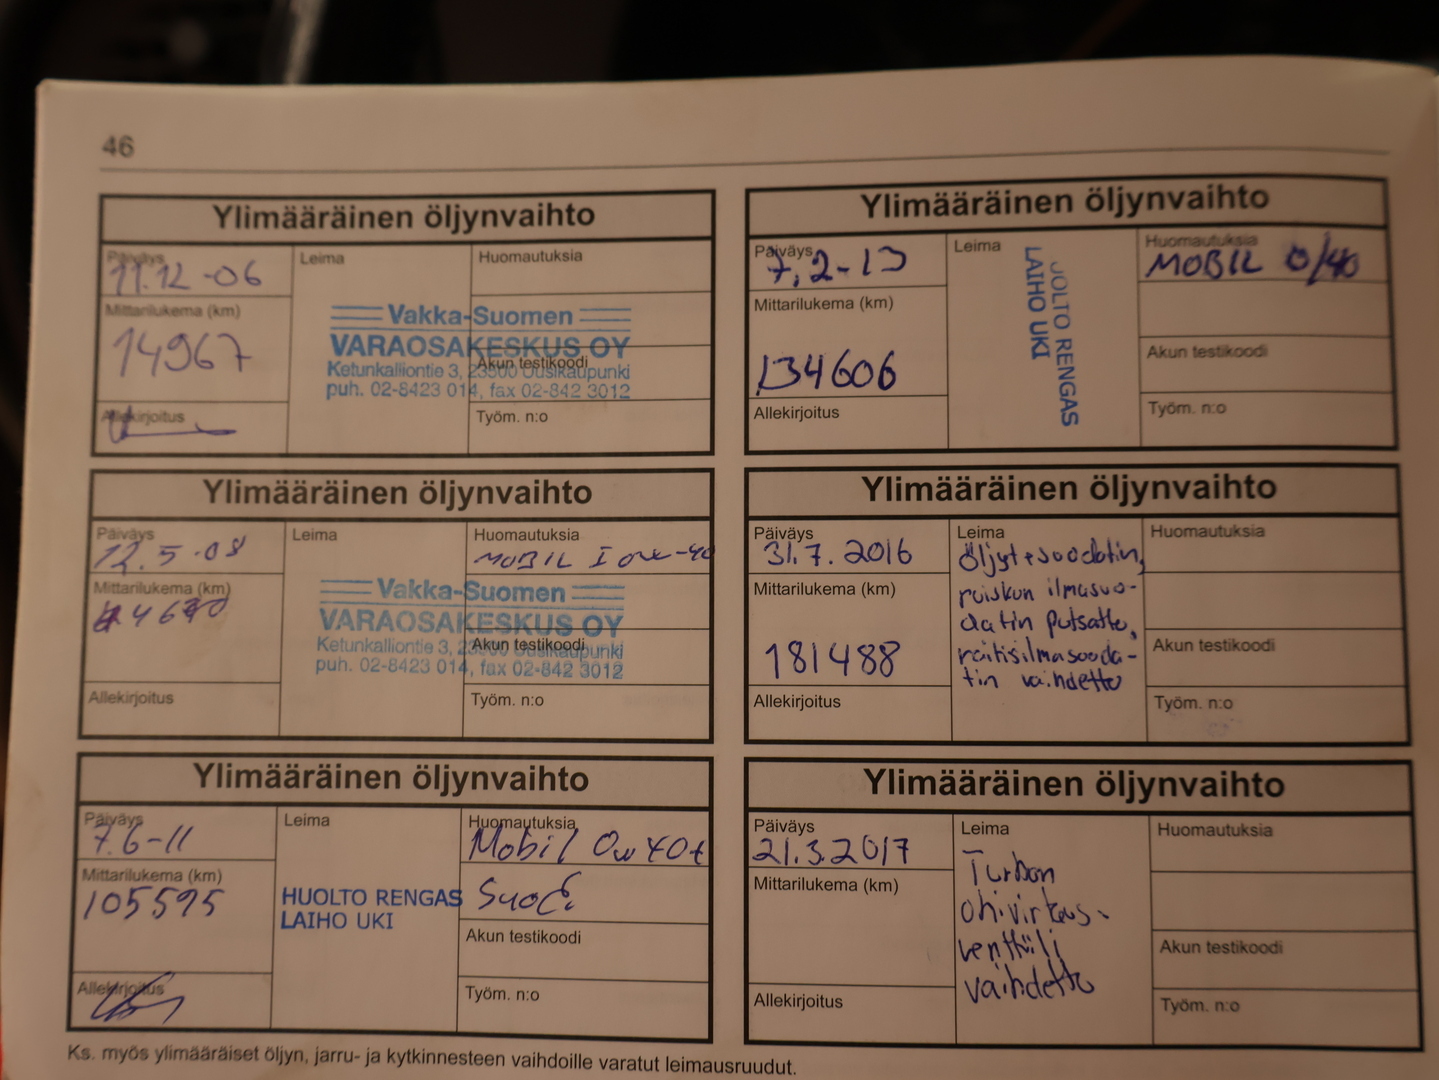 46
Ylimääräinen öljynvaihto
Päiväys
11.12-06
Leima
Huomautuksia
Mittarilukema (km)
14967
Vakka-Suomen
VARAOSAKESKUS OY
Ketunkalliontie 3, 23500 Uusikaupunki
puh. 02-8423 014, fax 02-842 3012
Akun testikoodi
Allekirjoitus
Työm. n:o
Ylimääräinen öljynvaihto
Päiväys
7.2-13
Leima
HUOLTO RENGAS
LAIHO UKI
Huomautuksia
MOBIL 0/40
Mittarilukema (km)
134606
Akun testikoodi
Allekirjoitus
Työm. n:o
Ylimääräinen öljynvaihto
Päiväys
12.5-08
Leima
Huomautuksia
MOBIL I 0W-40
Mittarilukema (km)
Vakka-Suomen
VARAOSAKESKUS OY
Ketunkalliontie 3, 23500 Uusikaupunki
puh. 02-8423 014, fax 02-842 3012
Akun testikoodi
Allekirjoitus
Työm. n:o
Ylimääräinen öljynvaihto
Päiväys
31.7.2016
Leima
Öljyt+suodatin,
ruiskun ilmasuo-
datin putsattu,
raitisilmasuoda-
tin vaihdettu
Huomautuksia
Mittarilukema (km)
181488
Akun testikoodi
Allekirjoitus
Työm. n:o
Ylimääräinen öljynvaihto
Päiväys
7.6-11
Leima
Huomautuksia
Mobil 0w40+
Mittarilukema (km)
105595
HUOLTO RENGAS
LAIHO UKI
Akun testikoodi
Allekirjoitus
Työm. n:o
Ylimääräinen öljynvaihto
Päiväys
21.3.2017
Leima
Turbon
ohivirtaus-
venttiili
vaihdettu
Huomautuksia
Mittarilukema (km)
Akun testikoodi
Allekirjoitus
Työm. n:o
Ks. myös ylimääräiset öljyn, jarru- ja kytkinnesteen vaihdoille varatut leimausruudut.